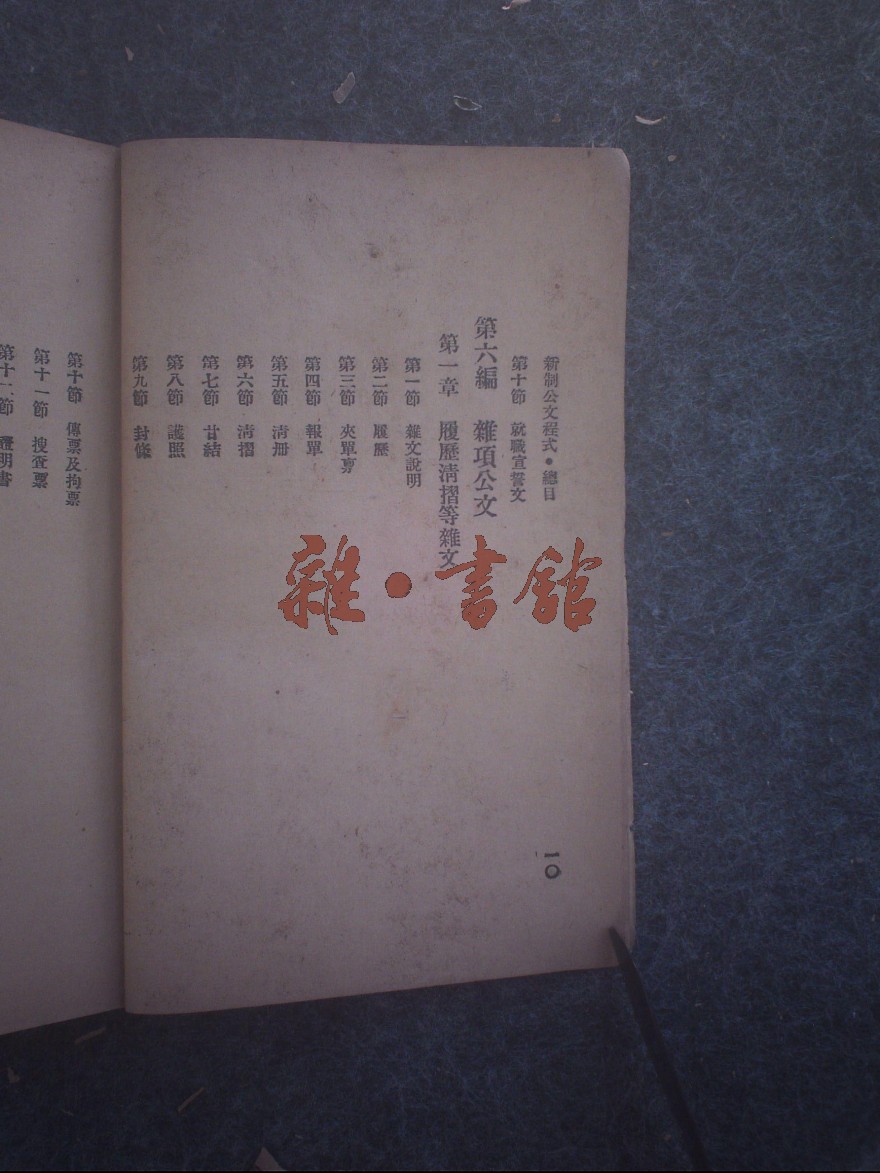 新制公文程式•總目
第十節 就職宣誓文
第六編 雜項公文
第一章 履歷淸摺等雜文
第一節 雜文說明
第二節 履歷
第三節 夾單
第四節 報單
第五節 淸册
第六節 淸摺
第七節 甘結
第八節 護照
第九節 封條
一〇
第十節 傳票及拘票
第十一節 搜查票
證明書
雜•書館